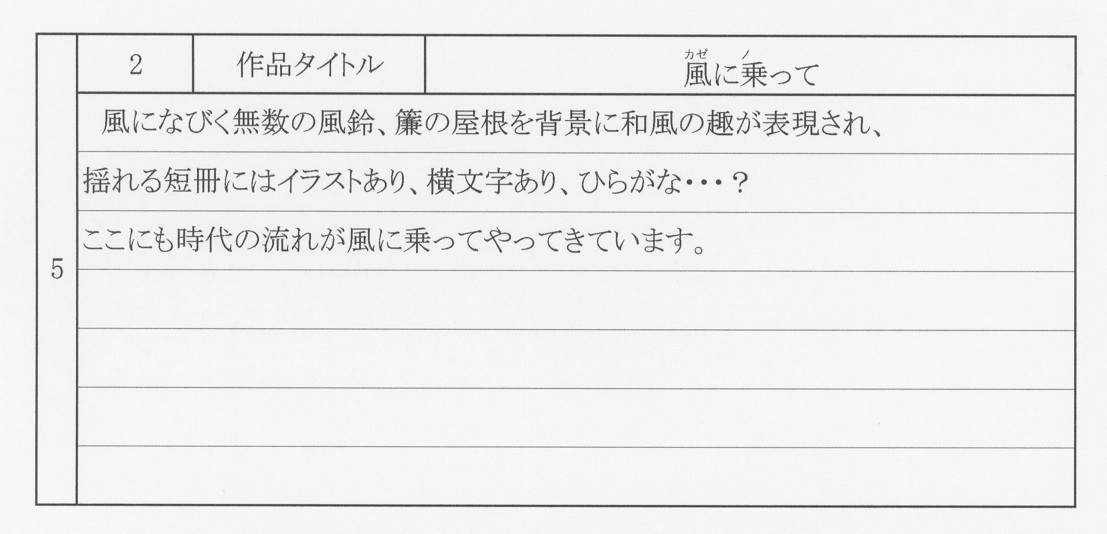 2 作品タイトル 風に乗って
カゼ ノ
風になびく無数の風鈴、簾の屋根を背景に和風の趣が表現され、
揺れる短冊にはイラストあり、横文字あり、ひらがな・・・？
ここにも時代の流れが風に乗ってやってきています。
5